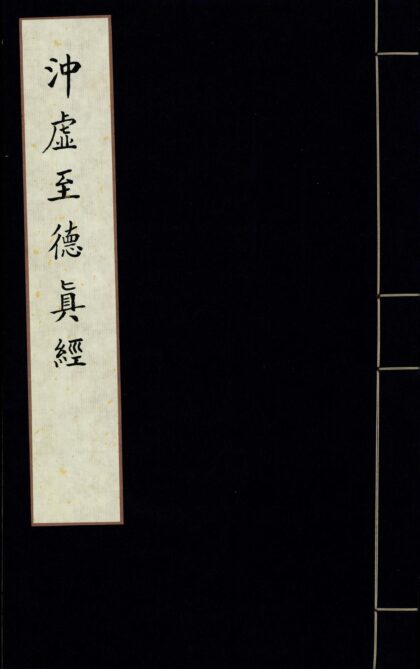 沖虛至德真經